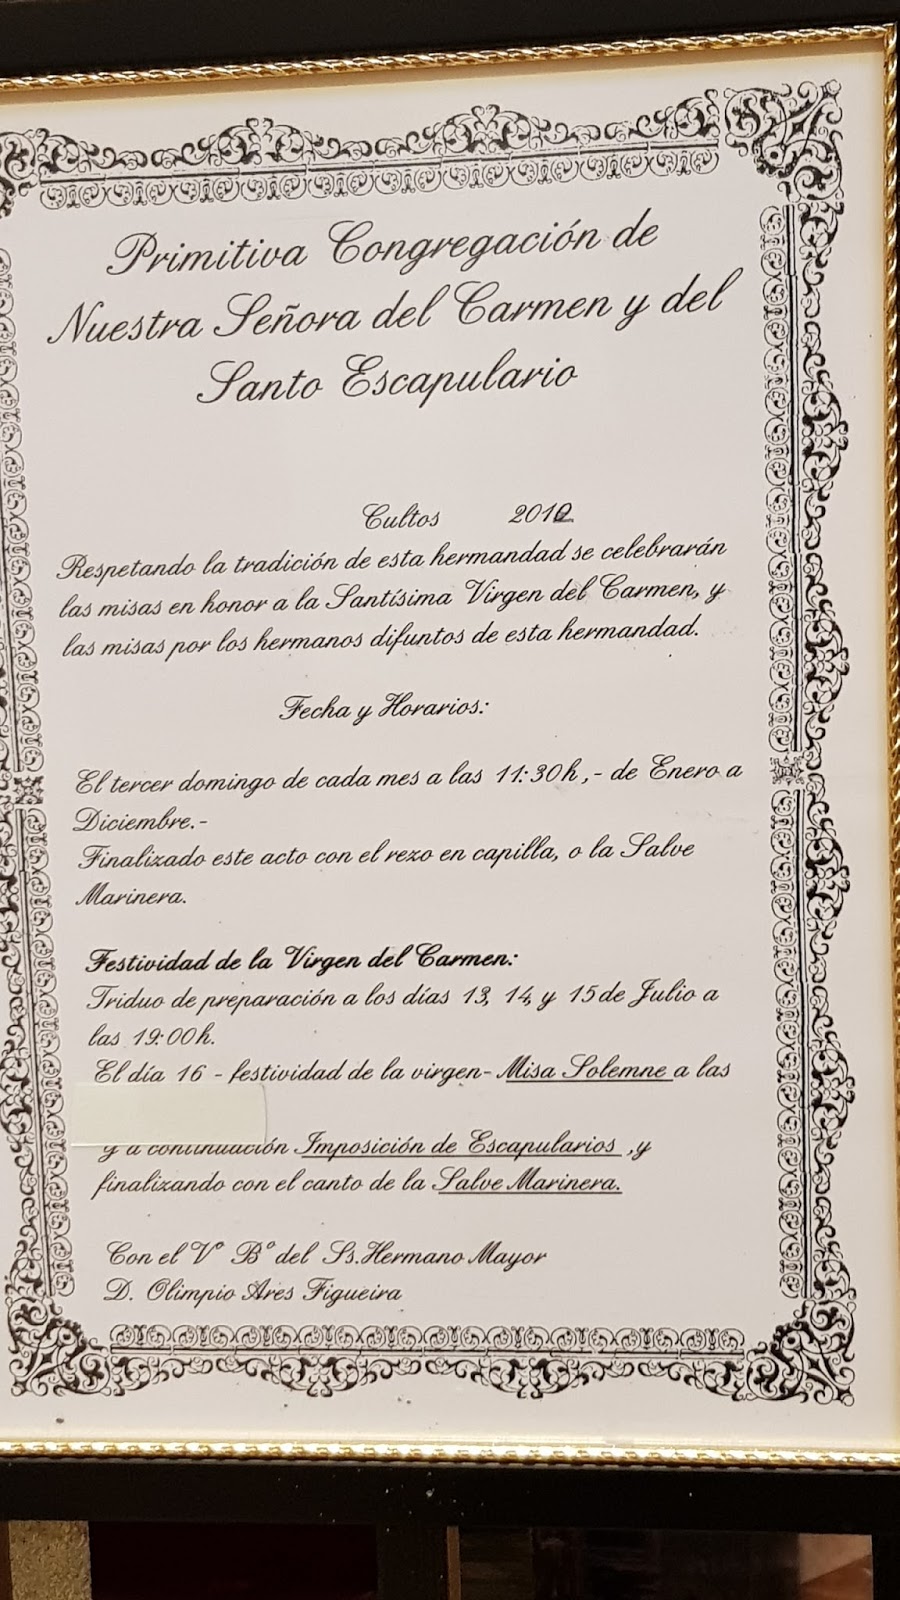 Primitiva Congregación de
Nuestra Señora del Carmen y del
Santo Escapulario
Cultos 2012
Respetando la tradición de esta hermandad se celebrarán
las misas en honor a la Santísima Virgen del Carmen, y
las misas por los hermanos difuntos de esta hermandad.
Fecha y Horarios:
El tercer domingo de cada mes a las 11:30h,- de Enero a
Diciembre.-
Finalizado este acto con el rezo en capilla, o la Salve
Marinera.
Festividad de la Virgen del Carmen:
Triduo de preparación a los días 13, 14, y 15 de Julio a
las 19:00h.
El día 16 - festividad de la virgen- Misa Solemne a las
y a continuación Imposición de Escapularios ,y
finalizando con el canto de la Salve Marinera.
Con el Vº Bº del Ss.Hermano Mayor
D. Olimpio Ares Figueira